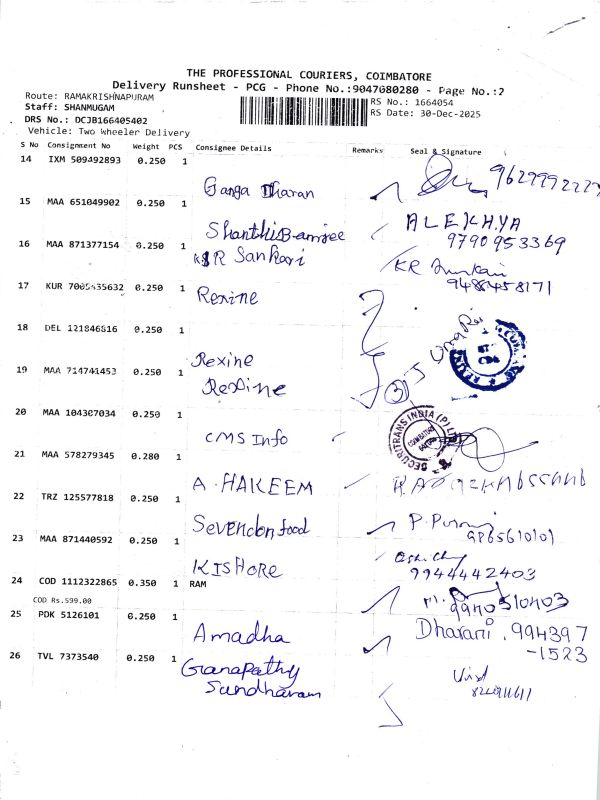 THE PROFESSIONAL COURIERS, COIMBATORE
Delivery Runsheet - PCG - Phone No.:9047080280 - Page No.:2
Route: RAMAKRISHNAPURAM
RS No.: 1664054
Staff: SHANMUGAM
RS Date: 30-Dec-2025
DRS No.: DCJB166405402
Vehicle: Two Wheeler Delivery
S No Consignment No Weight PCS Consignee Details Remarks Seal & Signature
14 IXM 509492893 0.250 1
Ganga Dharan
15 MAA 651049902 0.250 1
Shanthi Banrjee ALEKHYA
9790953369
16 MAA 871377154 0.250 1
KR Sankari KR
9486458171
17 KUR 7005635632 0.250 1
Rexine
18 DEL 121846616 0.250 1
Rexine
19 MAA 714741453 0.250 1
Rexine
20 MAA 104307034 0.250 1
CMS Info SECURITRANS INDIA (P) LTD COIMBATORE
21 MAA 578279345 0.280 1
A. HAKEEM
22 TRZ 125577818 0.250 1
Sevendon food P.
23 MAA 871440592 0.250 1
KISHORE
9944442403
24 COD 1112322865 0.350 1 RAM
COD Rs.599.00
9940510403
25 PDK 5126101 0.250 1
Amadha Dharani. 994397
-1523
26 TVL 7373540 0.250 1
Ganapathy
Sundharam